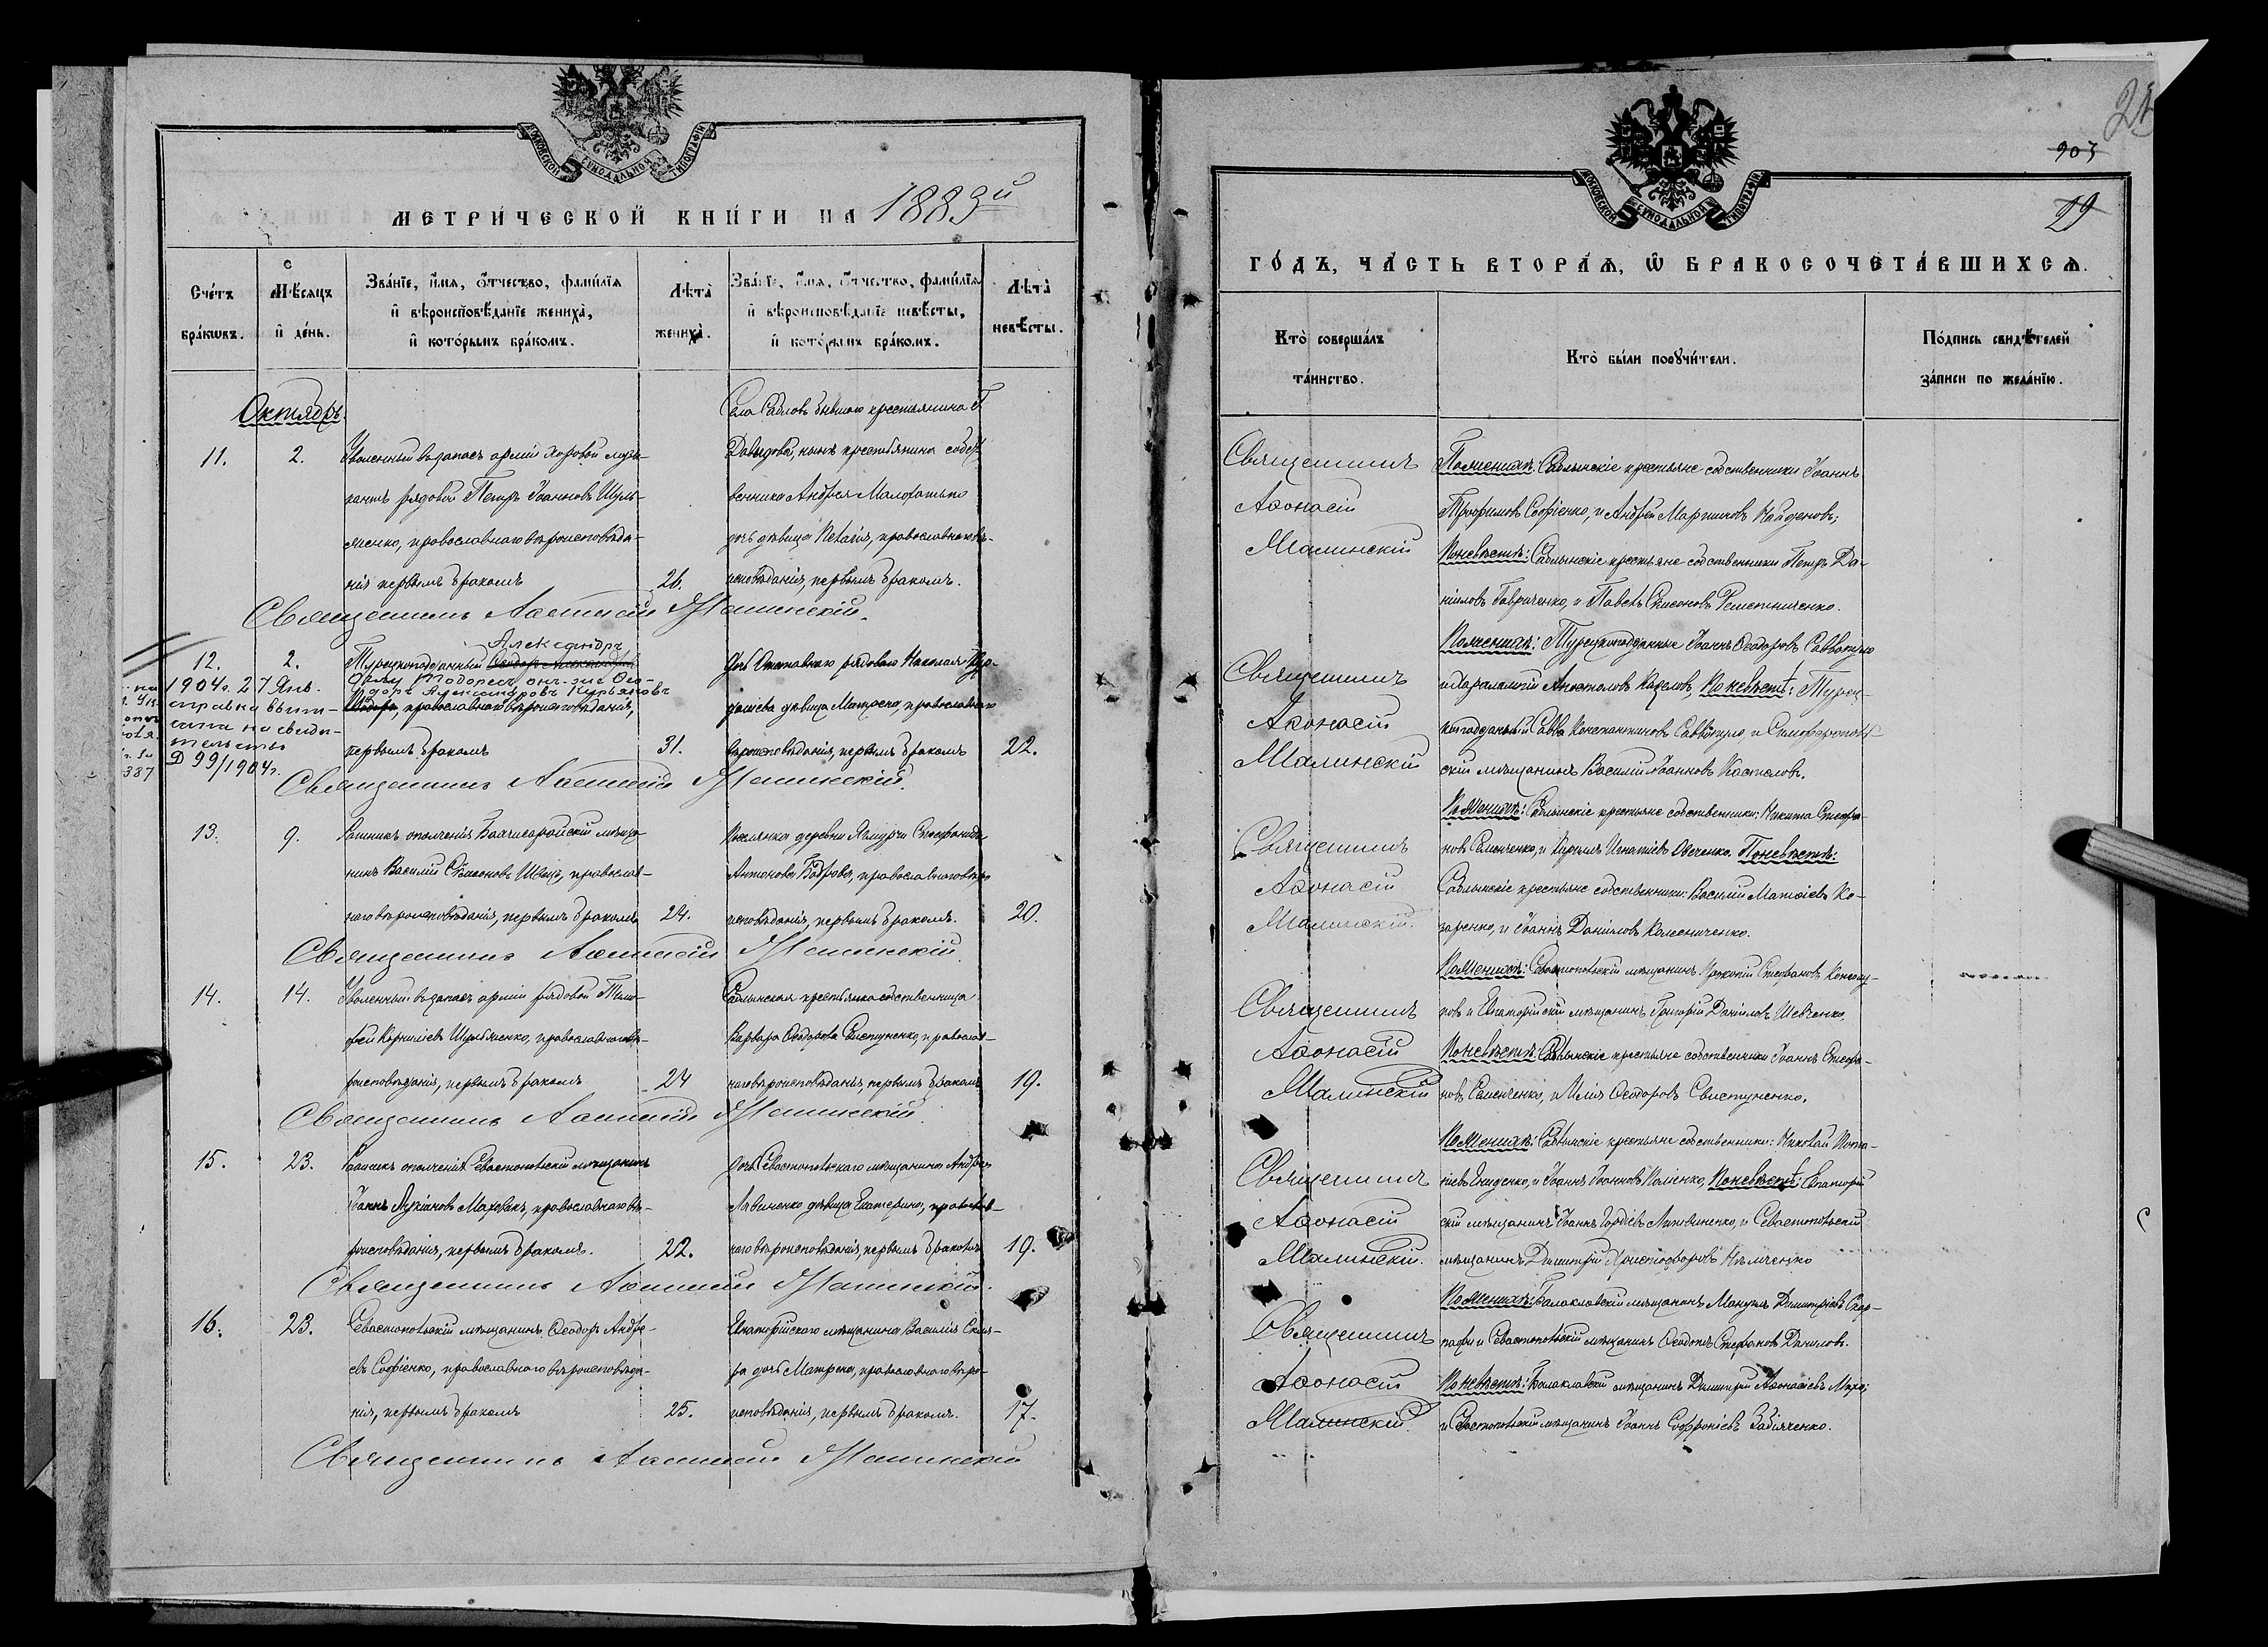 МОСКОВСКОЙ СУНОДАЛЬНОЙ ТИПОГРАФІИ
МЕТРИЧЕСКОЙ КНИГИ НА 1883й
Счетъ браковъ.
Мѣсяцъ и день.
Званіе, имя, отчество, фамилія
и вѣроисповѣданіе жениха,
и которымъ бракомъ.
Лѣта
жениха.
Званіе, имя, отчество, фамилія
и вѣроисповѣданіе невѣсты,
и которымъ бракомъ.
Лѣта
невѣсты.
Октябрь
11. 2. Уволенный въ запасъ арміи хоровой музы-
кантъ рядовой Петръ Іоанновъ Шуль-
менко, православнаго вѣроисповѣда-
нія первымъ бракомъ 26.
Села Сабловъ бывшаго крестьянина Г.
Давыдова, нынѣ крестьянина собст-
венника Андрея Малофатько
дочь дѣвица Пелагія, православнаго вѣ-
исповѣданія, первымъ бракомъ.
Священникъ Аѳанасій Малинскій.
12. 2. Турецкоподданный Александръ
Ѳеодоръ Александровъ Курьяновъ
православнаго вѣроисповѣданія,
первымъ бракомъ 31.
1904г. 27 Янв.
справка выпи-
сана на свидѣ-
тельство
Д 99/1904г.
387
Дочь Отставнаго рядового Николая
дѣвица Матрона, православнаго
вѣроисповѣданія, первымъ бракомъ 22.
Священникъ Аѳанасій Малинскій.
13. 9. Ратникъ ополченія Бахчисарайскій мѣща-
нинъ Василій Симеоновъ Швецъ, православ-
наго вѣроисповѣданія, первымъ бракомъ 24.
Поселянка деревни Стефанида
Антонова Боброва, православнаго вѣро-
исповѣданія, первымъ бракомъ. 20.
Священникъ Аѳанасій Малинскій.
14. 14. Уволенный въ запасъ арміи рядовой Тимо-
фей Корниліевъ Шульменко, православнаго вѣ-
роисповѣданія, первымъ бракомъ 24
Саблынская крестьянка собственница
Варвара Ѳеодорова Свистуненко, православ-
наго вѣроисповѣданія, первымъ бракомъ 19.
Священникъ Аѳанасій Малинскій
15. 23. Ратникъ ополченія Севастопольскій мѣщанинъ
Іоаннъ Лукіановъ Маховикъ, православнаго вѣ-
роисповѣданія, первымъ бракомъ. 22.
Дочь Севастопольскаго мѣщанина Андрея
Лавиненко дѣвица Екатерина, православ-
наго вѣроисповѣданія, первымъ бракомъ 19.
Священникъ Аѳанасій Малинскій.
16. 23. Севастопольскій мѣщанинъ Ѳеодоръ Андре-
евъ Софіенко, православнаго вѣроисповѣда-
нія, первымъ бракомъ 25.
Евпаторійскаго мѣщанина Василія Скля-
ра дочь Матрона, православнаго вѣро-
исповѣданія, первымъ бракомъ. 17.
Священникъ Аѳанасій Малинскій
МОСКОВСКОЙ СУНОДАЛЬНОЙ ТИПОГРАФІИ
903
29
ГОДЪ, ЧАСТЬ ВТОРАЯ, Ѡ БРАКОСОЧЕТАВШИХСЯ.
Кто совершалъ
таинство.
Кто были поручители.
Подпись свидѣтелей
записи по желанію.
Священникъ
Аѳонасій
Малинскій
По женихѣ: Саблынскіе крестьяне собственники Іоаннъ
Трофимовъ Софіенко, и Андрей Мартиновъ Найденовъ;
По невѣстѣ: Саблынскіе крестьяне собственники Петръ Да-
ніиловъ Гавриченко, и Павелъ Симоновъ Решетниченко.
Священникъ
Аѳонасій
Малинскій
По женихѣ: Турецкоподданные Іоаннъ Ѳеодоровъ Саввопуло
и Харалампій Апостоловъ Кацеловъ. По невѣстѣ: Турец-
коподданый Савва Константиновъ Саввопуло, и Симферополь-
скій мѣщанинъ Василій Іоанновъ Костеловъ.
Священникъ
Аѳонасій
Малинскій.
По женихѣ: Саблынскіе крестьяне собственники: Никита Стефа-
новъ Семенченко, и Кириллъ Игнатіевъ Овченко. По невѣстѣ:
Саблынскіе крестьяне собственники: Василій Матѳіевъ Ко-
заренко, и Іоаннъ Даніиловъ Колесниченко.
Священникъ
Аѳонасій
Малинскій
По женихѣ: Севастопольскій мѣщанинъ Прокопій Стефановъ
и Евпаторійскій мѣщанинъ Григорій Даніиловъ Шевченко.
По невѣстѣ: Саблынскіе крестьяне собственники Іоаннъ Стефа-
новъ Семенченко, и Илія Ѳеодоровъ Свистуненко.
Священникъ
Аѳонасій
Малинскій.
По женихѣ: Саблынскіе крестьяне собственники: Николай Игна-
тіевъ Гниденко, и Іоаннъ Іоанновъ Коліенко. По невѣстѣ: Евпаторій-
скій мѣщанинъ Іоаннъ Гордіевъ Литвиненко, и Севастопольскій
мѣщанинъ Димитрій Христофоровъ Нѣмченко
Священникъ
Аѳонасій
Малинскій.
По женихѣ: Балаклавскій мѣщанинъ Мануилъ Димитріевъ Скар-
пафи и Севастопольскій мѣщанинъ Ѳеодотъ Стефановъ Даниловъ.
По невѣстѣ: Балаклавскій мѣщанинъ Димитрій Аѳанасіевъ
и Севастопольскій мѣщанинъ Іоаннъ Софроніевъ Забіяченко.